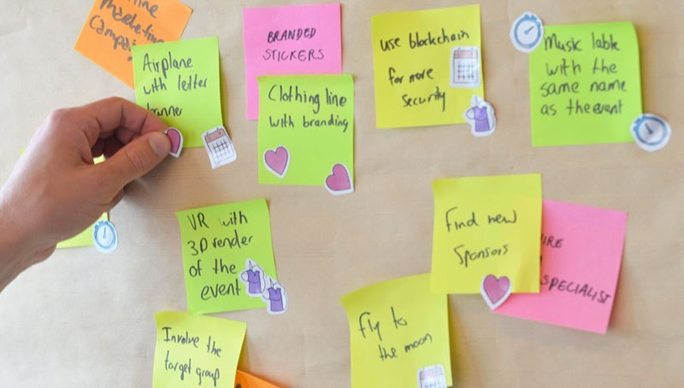 Marketing
Campai
Airplane
with letter
BRANDED
STICKERS
Clothing line
with branding
use blockchain
for more
security
Music lable
with the
same name
as the event
VR with
3D render
of the
event
Find new
Sponsors
SPECIALIST
Involve the
target group
Fly to
the moon